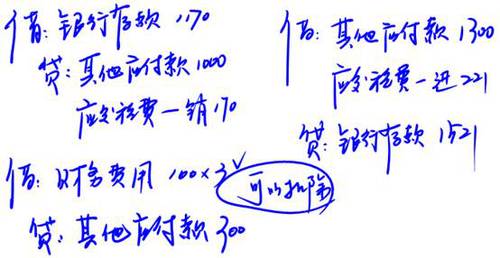 借：银行存款 1170
贷：其他应付款 1000
应交税费－销 170
借：财务费用 100×3 ✓ 可以扣除
贷：其他应付款 300
借：其他应付款 1300
应交税费－进 221
贷：银行存款 1521